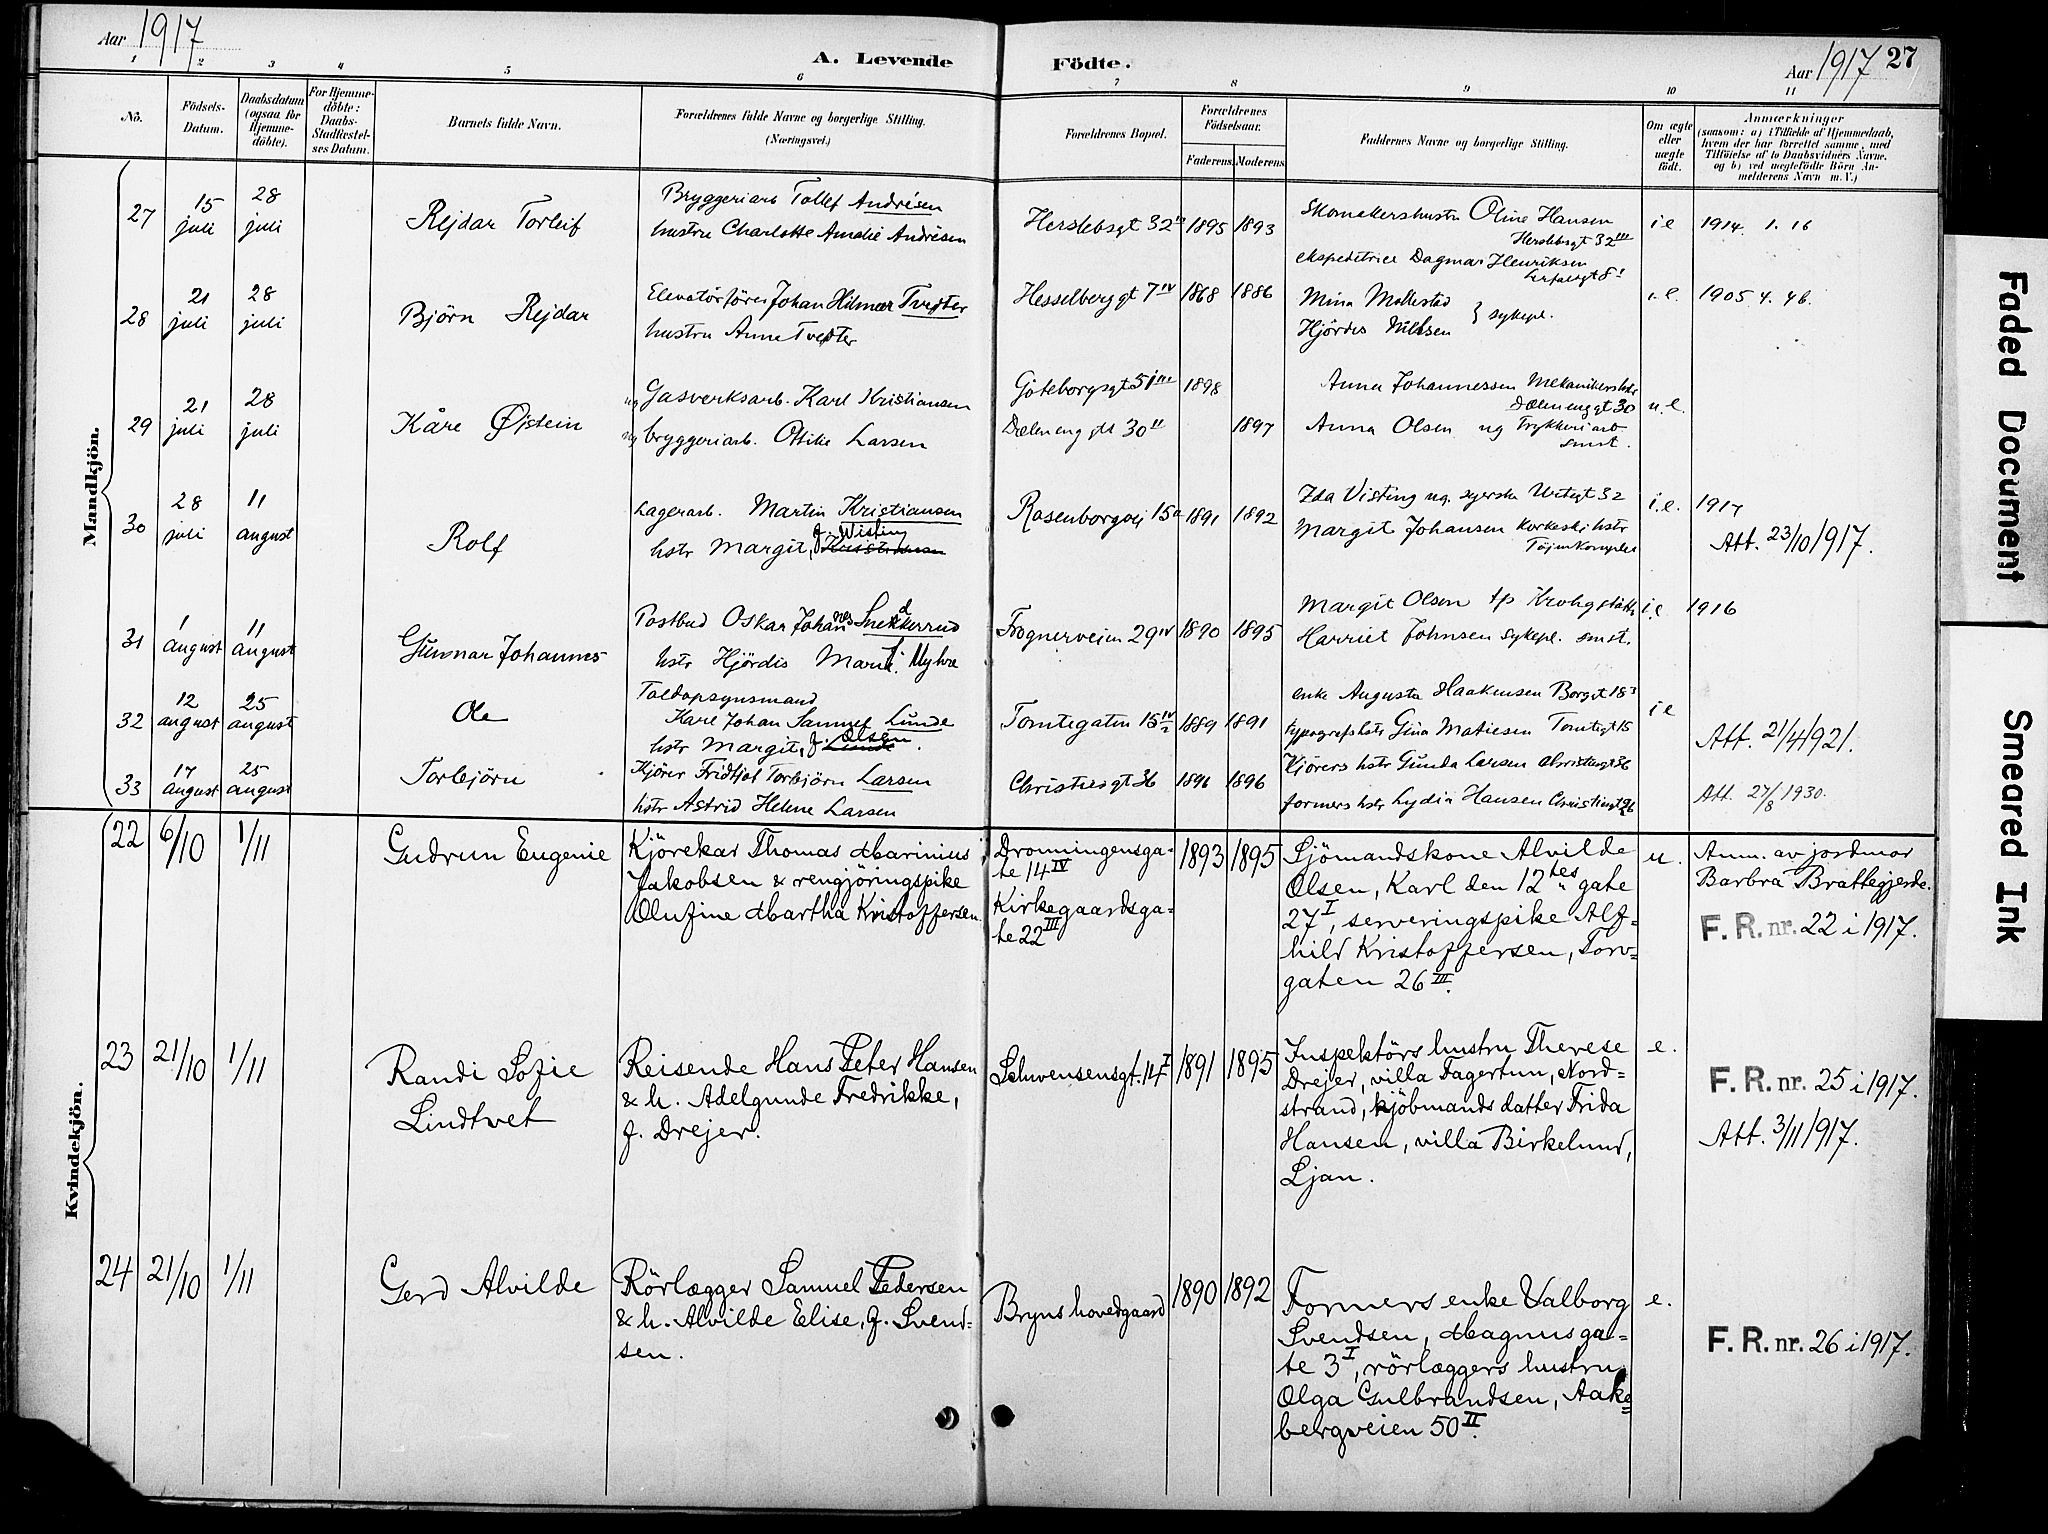 Aar 1917
A. Levende Födte.
Aar 1917 27
1 2 3 4 5 6 7 8 9 10 11
Nö.
Födsels-Datum.
Daabsdatum (ogsaa for Hjemme-döbte).
For Hjemme-döbte: Daabs-Stadfæstel-ses Datum.
Barnets fulde Navn.
Forældrenes fulde Navne og borgerlige Stilling.
(Næringsvei.)
Forældrenes Bopæl.
Forældrenes Födselsaar.
Faderens. Moderens.
Faddernes Navne og borgerlige Stilling.
Om ægte eller uægte födt.
Anmærkninger
(saasom: a) i Tilfælde af Hjemmedaab,
hvem der har forrettet samme, med
Tilföielse af to Daabsvidners Navne,
og b) ved uægtefödte Börn An-
melderens Navn m. V.)
Mandkjön.
27 15 juli 28 juli Rejdar Torleif
Bryggeriarb Tollef Andrésen
hustru Charlotte Amalie Andrésen
Herslebsgt 32 1895 1893
Skomakershustru Oline Hansen
Herslebsgt 32 III
ekspeditrice Dagmar Henriksen
i e 1914. 1. 16
28 21 juli 28 juli Björn Rejdar
Elevatörförer Johan Hilmar Tvedter
hustru Anne Tvedter
Hesselberggt 7 IV 1868 1886
Mina Mollestad
Hjördis Nilsen } sykepl.
i. e. 1905 4. 46.
29 21 juli 28 juli Kåre Øistein
ug Gasverksarb. Karl Kristiansen
ug bryggeriarb. Ottilie Larsen
Göteborgsgt 51 III 1898
Dælenenggt 30 II 1897
Anna Johannessen Mekanikershstr
Dælenenggt 30
Anna Olsen ug Trykkeriarb
smst.
u. e.
30 28 juli 11 august Rolf
Lagerarb. Martin Kristiansen
hstr Margit, f. Wisting Kristiansen
Rosenborggt 15 1891 1892
Ida Visting ug. syerske Urtegt 32
Margit Johansen
i. e. 1917
Att. 23/10 1917.
31 1 august 11 august Gunnar Johannes
Postbud Oskar Johannes Snekkerrud
hstr Hjördis Marie f. Myhre
Frognerveien 29 IV 1890 1895
Margit Olsen tp
Harriet Johnsen sykepl. smst.
i. e 1916
32 12 august 25 august Ole
Toldopsynsmand
Karl Johan Samuel Lunde
hstr Margit, f. Olsen Lunde.
Tomtegaten 15 IV 1889 1891
enke Augusta Haakensen Borggt 18
typografhstr Gina Matiesen Tomtegt 15
i e
Att. 21/4 1921.
33 17 august 25 august Torbjörn
Kjörer Fridtjof Torbjörn Larsen
hstr Astrid Helene Larsen
Christiesgt 36 1896 1896
Kjörers hstr Gunda Larsen Christiesgt 36
formers hstr Lydia Hansen Christiesgt 26
Att. 27/8 1930.
Kvindekjön.
22 6/10 1/11 Gudrun Eugenie
Kjörekar Thomas Marinius
Jakobsen & rengjöringspike
Olufine Martha Kristoffersen.
Dronningensga-
te 14 IV
Kirkegaardsga-
te 22 III
1893 1895
Sjömandskone Alvilde
Olsen, Karl den 12tes gate
27 I, serveringspike Alf-
hild Kristoffersen, Torv-
gaten 26 III.
u.
Anm. av jordmor
Barbra Brattegjerde.
F. R. nr. 22 i 1917.
23 21/10 1/11 Randi Sofie
Lindtvet
Reisende Hans Peter Hansen
& h. Adelgunde Fredrikke,
f. Drejer.
Schwensensgt. 14 I 1891 1895
Inspektörs hustru Therese
Drejer, villa Fagertun, Nord-
strand, kjöbmands datter Frida
Hansen, villa Birkelund,
Ljan.
e.
F. R. nr. 25 i 1917.
Att. 3/11 1917.
24 21/10 1/11 Gerd Alvilde
Rörlægger Samuel Pedersen
& h. Alvilde Elise, f. Svend-
sen.
Bryns hovedgaard 1890 1892
Formers enke Valborg
Svendsen, Magnusga-
te 3 I, rörlæggers hustru
Olga Gulbrandsen, Aake-
bergveien 50 II.
e.
F. R. nr. 26 i 1917.
Faded Document
Smeared Ink